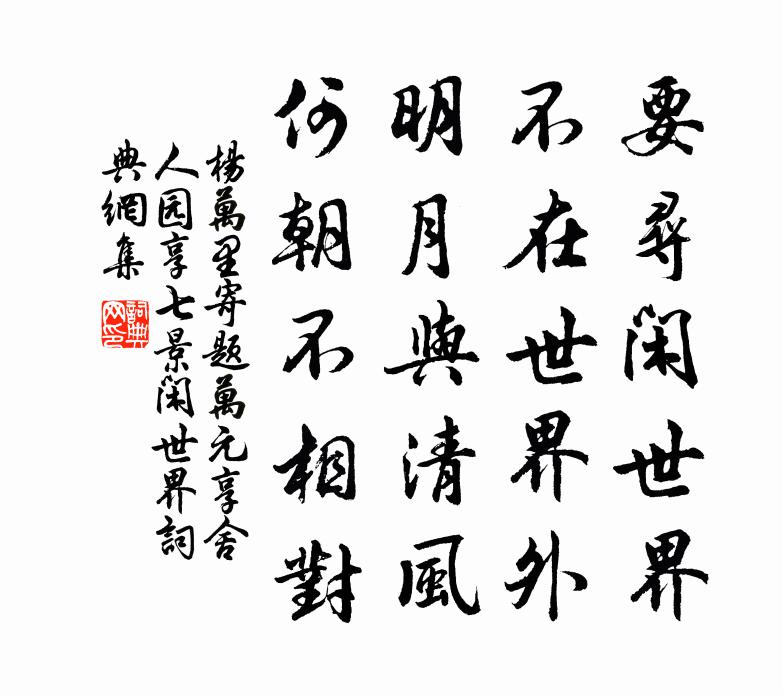 要尋閑世界
不在世界外
明月與清風
何朝不相對
楊萬里寄題萬元享舍
人园享七景閑世界詞
典網集
詞典
网印